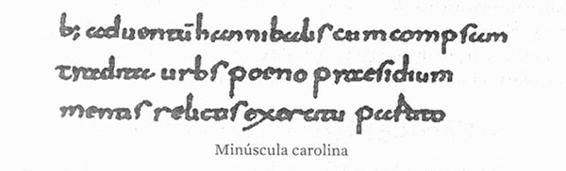 b; aduentū hannibalis cum compsam
tradita urbs poeno praesidium
mentis relictis exercitu partito
Minúscula carolina